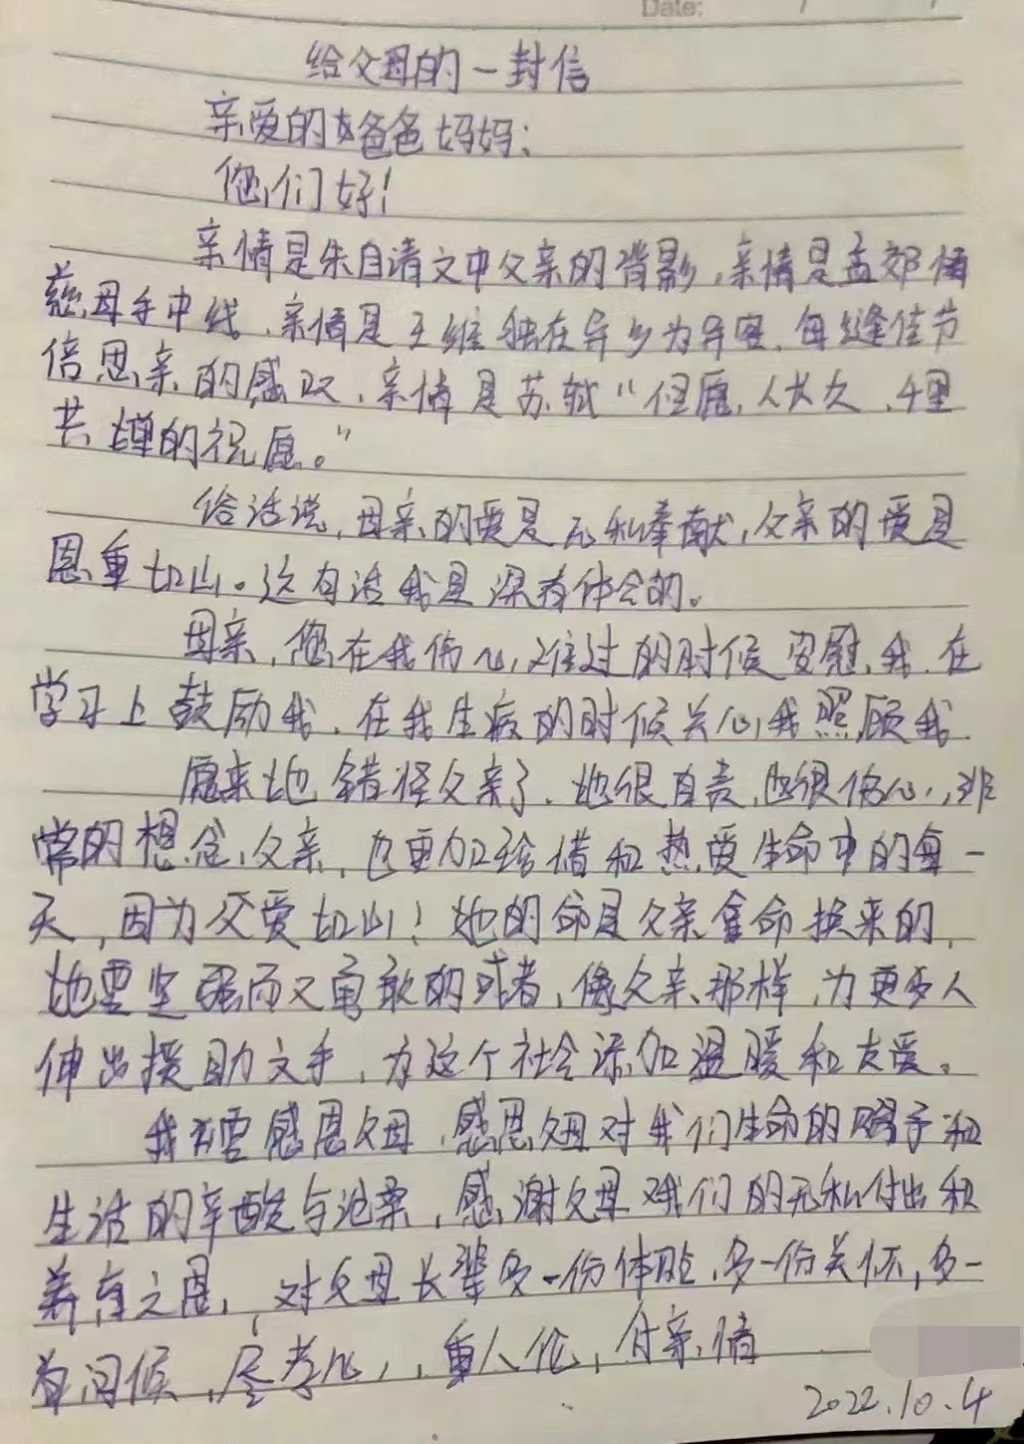 Date: / /
给父母的一封信
亲爱的爸爸妈妈:
您们好!
亲情是朱自清文中父亲的背影,亲情是孟郊
慈母手中线,亲情是王维独在异乡为异客,每逢佳节
倍思亲的感叹,亲情是苏轼“但愿人长久,千里
共婵的祝愿。”
俗话说,母亲的爱是无私奉献,父亲的爱是
恩重如山。这句话我是深有体会的。
母亲,您在我伤心难过的时候安慰我,在
学习上鼓励我,在我生病的时候关心我照顾我.
原来她错怪父亲了,她很自责,也很伤心,非
常的想念父亲,也更加珍惜和热爱生命中的每一
天,因为父爱如山!她的命是父亲拿命换来的,
她要坚强而又勇敢的或者,像父亲那样,为更多人
伸出援助之手,为这个社会添加温暖和友爱。
我要感恩父母,感恩父母对我们生命的赐予和
生活的辛酸与沧桑,感谢父母对我们的无私付出和
养育之恩,对父母长辈多一份体贴,多一份关怀,多一
问候,尽孝心,重人伦,付亲情
2022.10.4